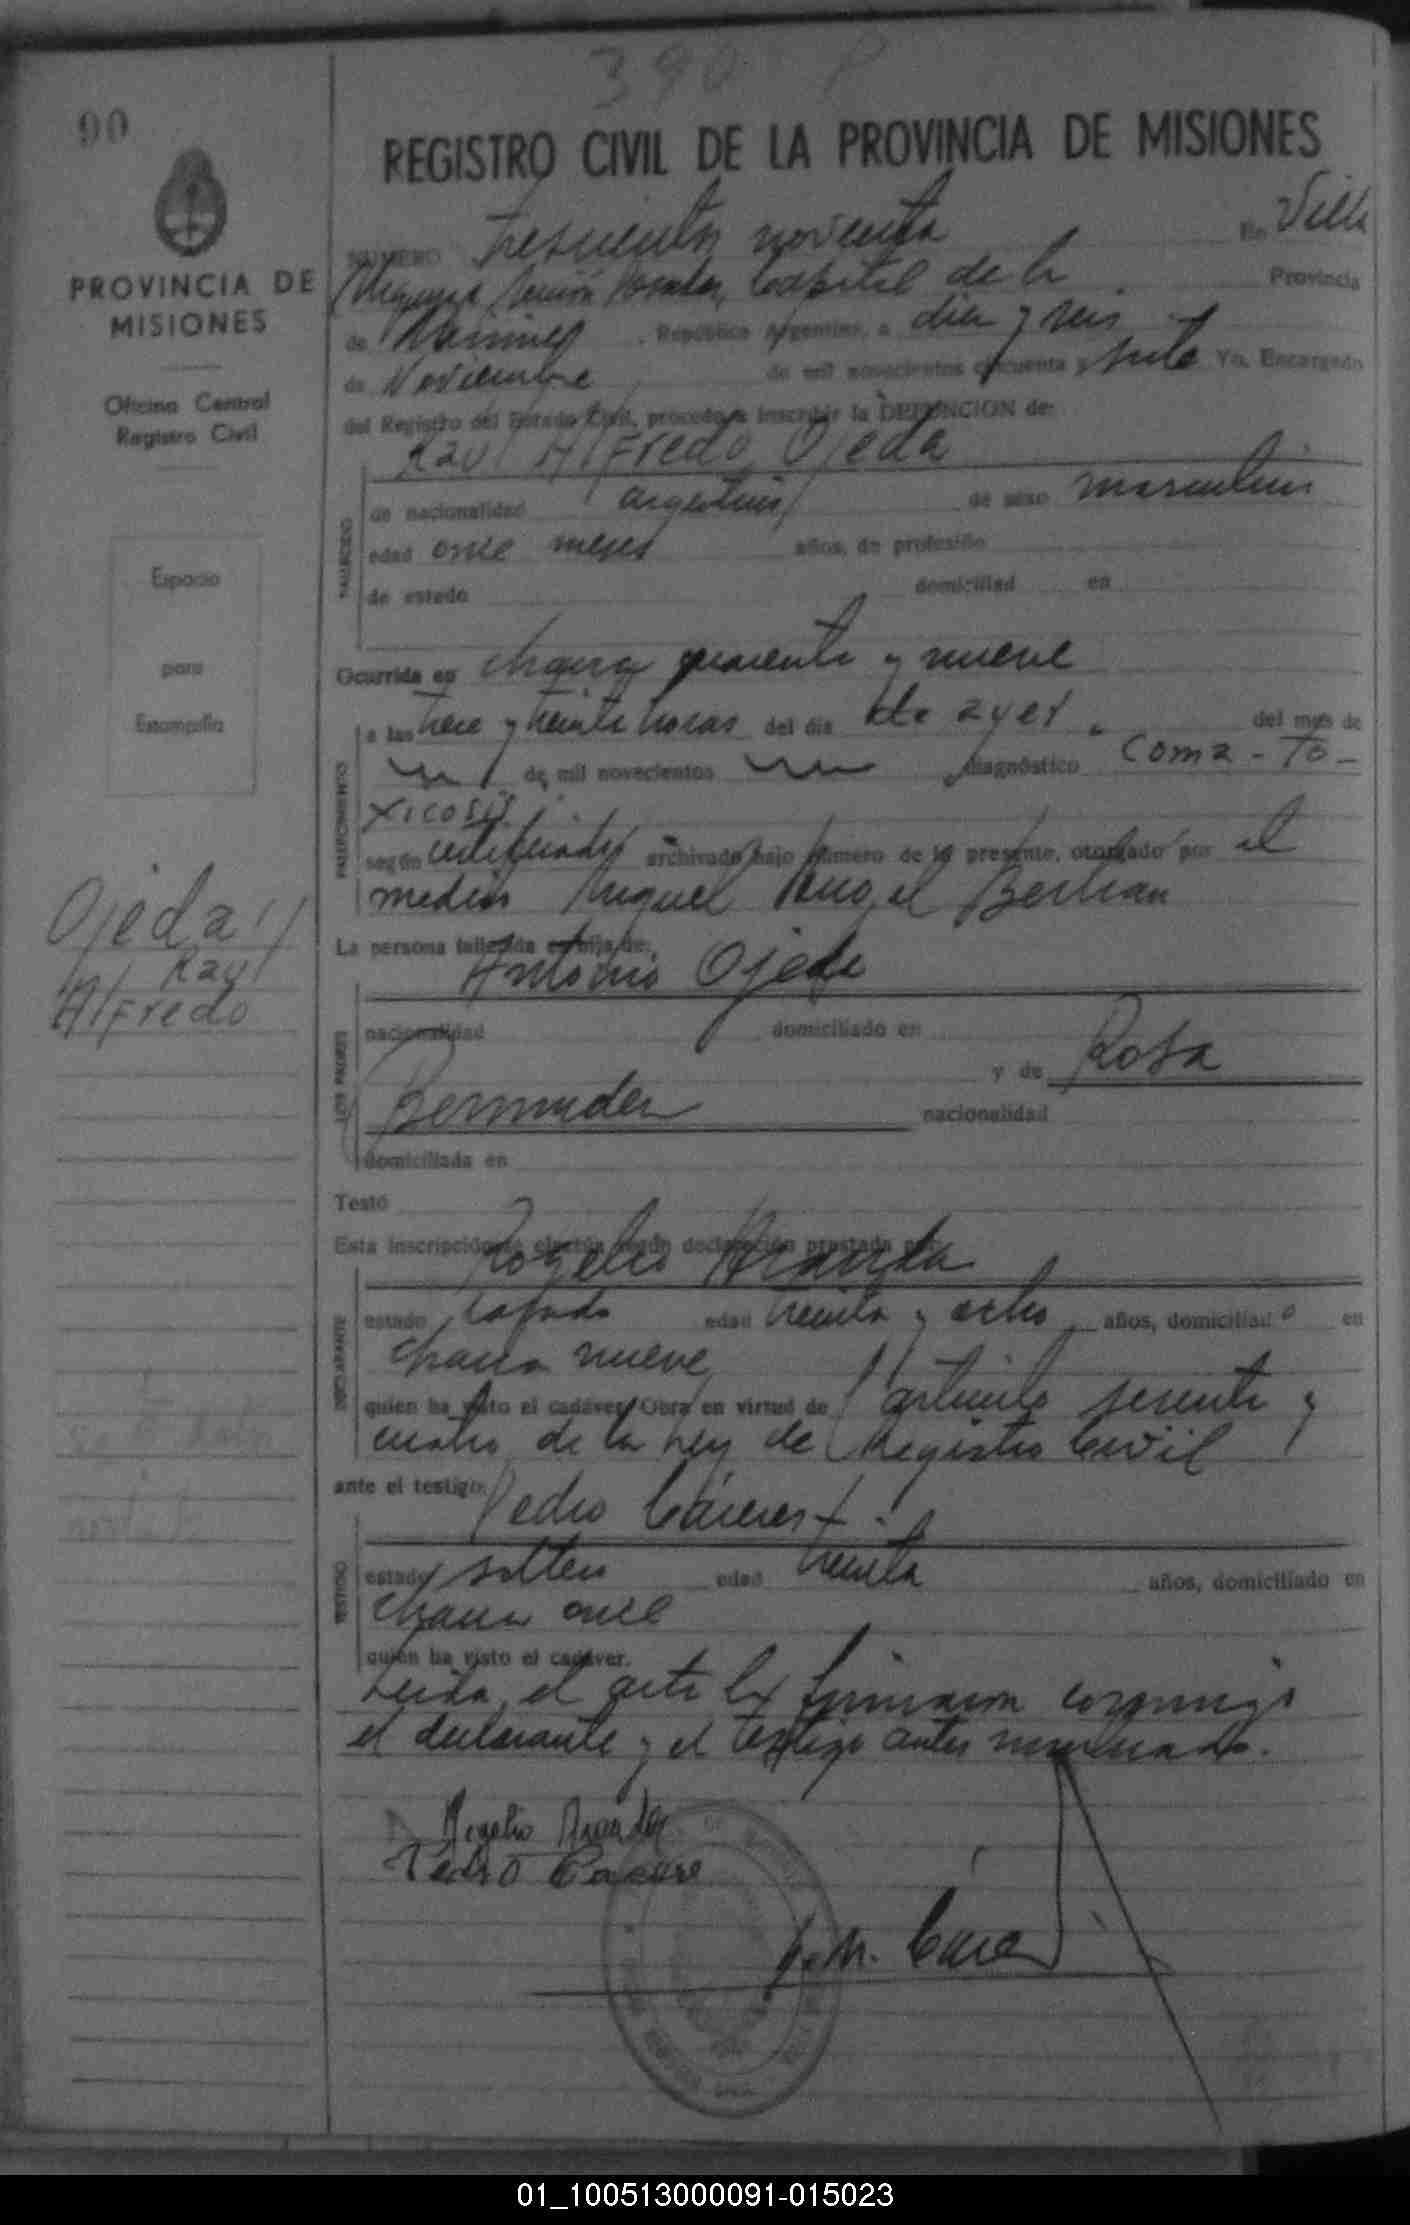 390 P
90
REGISTRO CIVIL DE LA PROVINCIA DE MISIONES
PROVINCIA DE
MISIONES
Oficina Central
Registro Civil
Espacio
para
Estampilla
Ojeda
Raul
Alfredo
NUMERO Trescientos noventa En Villa
Capital de la Provincia
de Misiones República Argentina, a diez y seis
de Noviembre de mil novecientos cincuenta y siete Yo, Encargado
del Registro del Estado Civil, procedo a inscribir la DEFUNCION de:
Raul Alfredo Ojeda
FALLECIDO
de nacionalidad argentino de sexo masculino
edad once meses años, de profesión
de estado domiciliad en
Ocurrida en chacra cuarenta y nueve
FALLECIMIENTO
a las trece y treinta horas del día de ayer del mes de
de mil novecientos diagnóstico Coma - To-
xicosis
según certificado archivado bajo número de la presente, otorgado por el
medico Miguel Angel Bertran
La persona fallecida es hija de:
Antonio Ojeda
LOS PADRES
nacionalidad domiciliado en
y de Rosa
Bermudez nacionalidad
domiciliada en
Testó
Esta inscripción se efectúa según declaración prestada por
Rogelio Aranda
DECLARANTE
estado casado edad treinta y ocho años, domiciliado en
chacra nueve
quien ha visto el cadáver. Obra en virtud de artículo sesenta y
cuatro de la Ley de Registro Civil
ante el testigo: Pedro Cáceres
TESTIGO
estado soltero edad treinta años, domiciliado en
chacra once
quien ha visto el cadáver.
Leida el acta la firmaron conmigo
el declarante y el testigo antes mencionado.
Rogelio Aranda
Pedro Casere
01_100513000091-015023